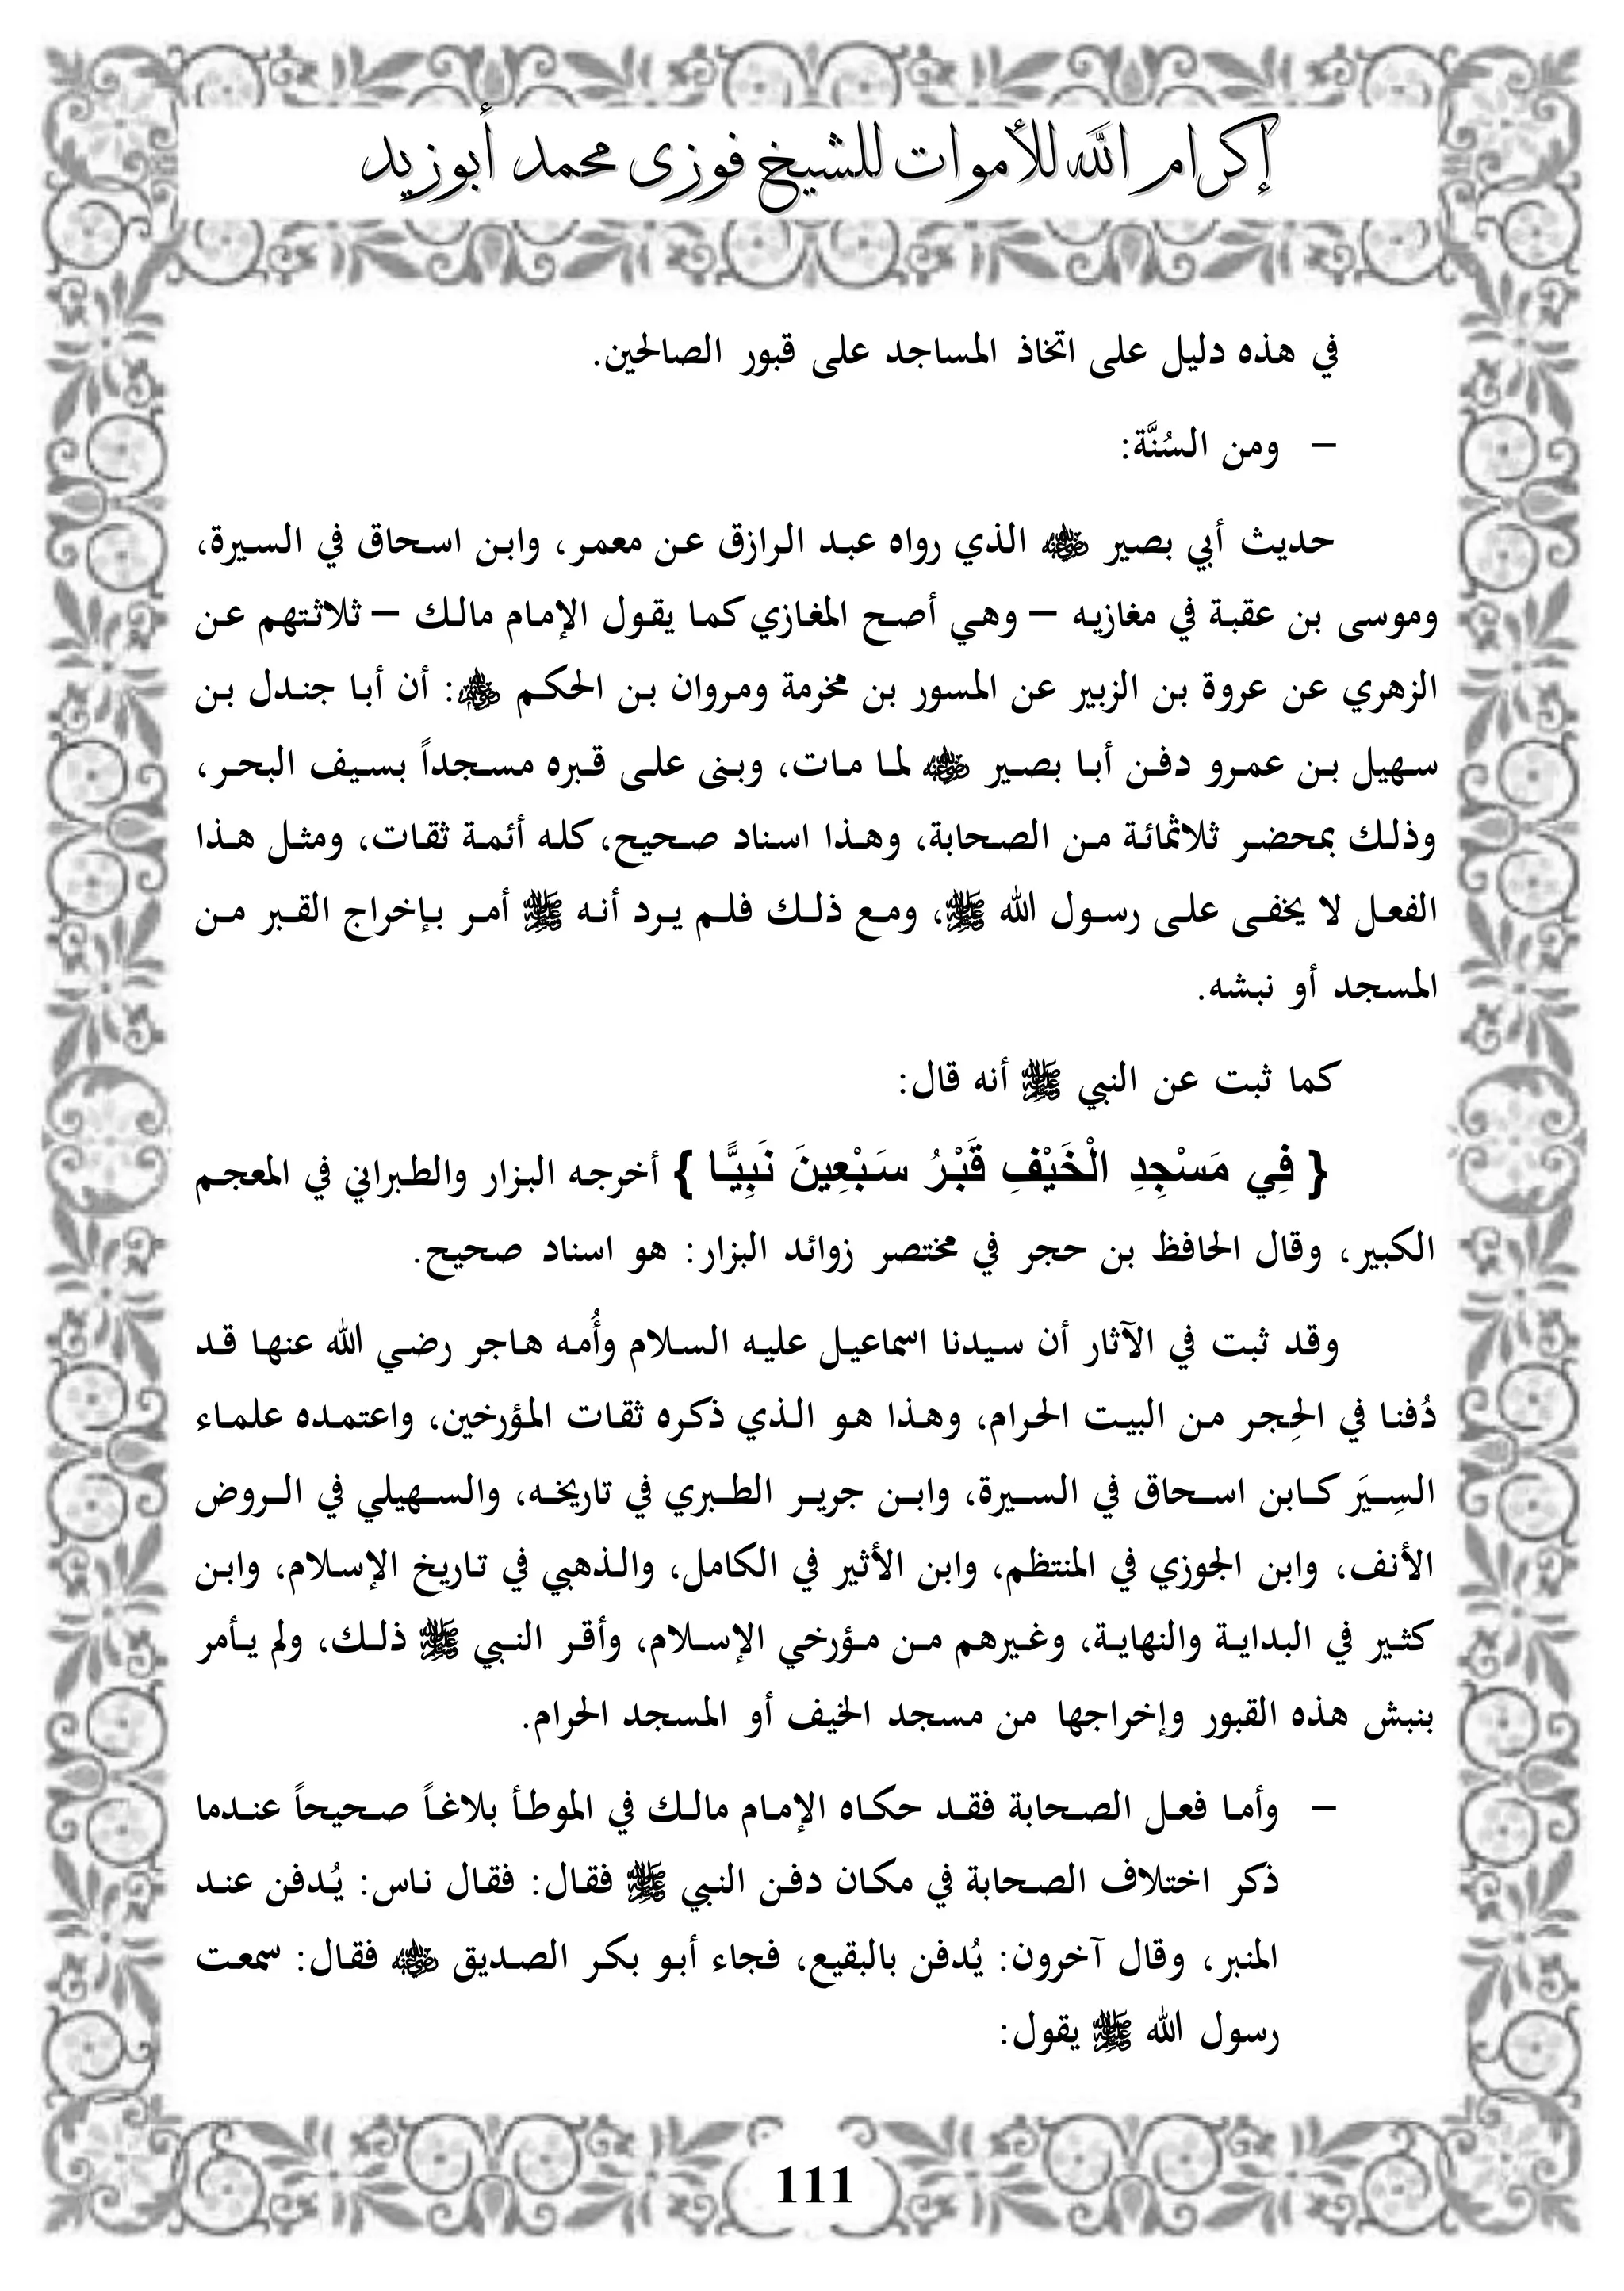 إكرام الله للأموات للشيخ فوزى محمد أبوزيد
في هذه دليل على اتخاذ المساجد على قبور الصالحين.
– ومن السُنَّة:
حديث أبي بصير ﵁ الذي رواه عبد الرازق عن معمر، وابن اسحاق في السيرة،
وموسى بن عقبة في مغازيه – وهي أصح المغازي كما يقول الإمام مالك – ثلاثتهم عن
الزهري عن عروة بن الزبير عن المسور بن مخرمة ومروان بن الحكم ﵃: أن أبا جندل بن
سهيل بن عمرو دفن أبا بصير ﵁ لما مات، وبنى على قبره مسجداً بسيف البحر،
وذلك بمحضر ثلاثمائة من الصحابة، وهذا اسناد صحيح، كله أئمة ثقات، ومثل هذا
الفعل لا يخفى على رسول الله ﷺ، ومع ذلك فلم يرد أنه ﷺ أمر بإخراج القبر من
المسجد أو نبشه.
كما ثبت عن النبي ﷺ أنه قال:
{ فِي مَسْجِدِ الْخَيْفِ قَبْرُ سَبْعِينَ نَبِيًّا } أخرجه البزار والطبراني في المعجم
الكبير، وقال الحافظ بن حجر في مختصر زوائد البزار: هو اسناد صحيح.
وقد ثبت في الآثار أن سيدنا اسماعيل عليه السلام وأُمه هاجر رضي الله عنها قد
دُفنا في الحِجر من البيت الحرام، وهذا هو الذي ذكره ثقات المؤرخين، واعتمده علماء
السِيَر كابن اسحاق في السيرة، وابن جرير الطبري في تاريخه، والسهيلي في الروض
الأنف، وابن الجوزي في المنتظم، وابن الأثير في الكامل، والذهبي في تاريخ الإسلام، وابن
كثير في البداية والنهاية، وغيرهم من مؤرخي الإسلام، وأقر النبي ﷺ ذلك، ولم يأمر
بنبش هذه القبور وإخراجها من مسجد الخيف أو المسجد الحرام.
– وأما فعل الصحابة فقد حكاه الإمام مالك في الموطأ بلاغاً صحيحاً عندما
ذكر اختلاف الصحابة في مكان دفن النبي ﷺ فقال: فقال ناس: يُدفن عند
المنبر، وقال آخرون: يُدفن بالبقيع، فجاء أبو بكر الصديق ﵁ فقال: سمعت
رسول الله ﷺ يقول:
111